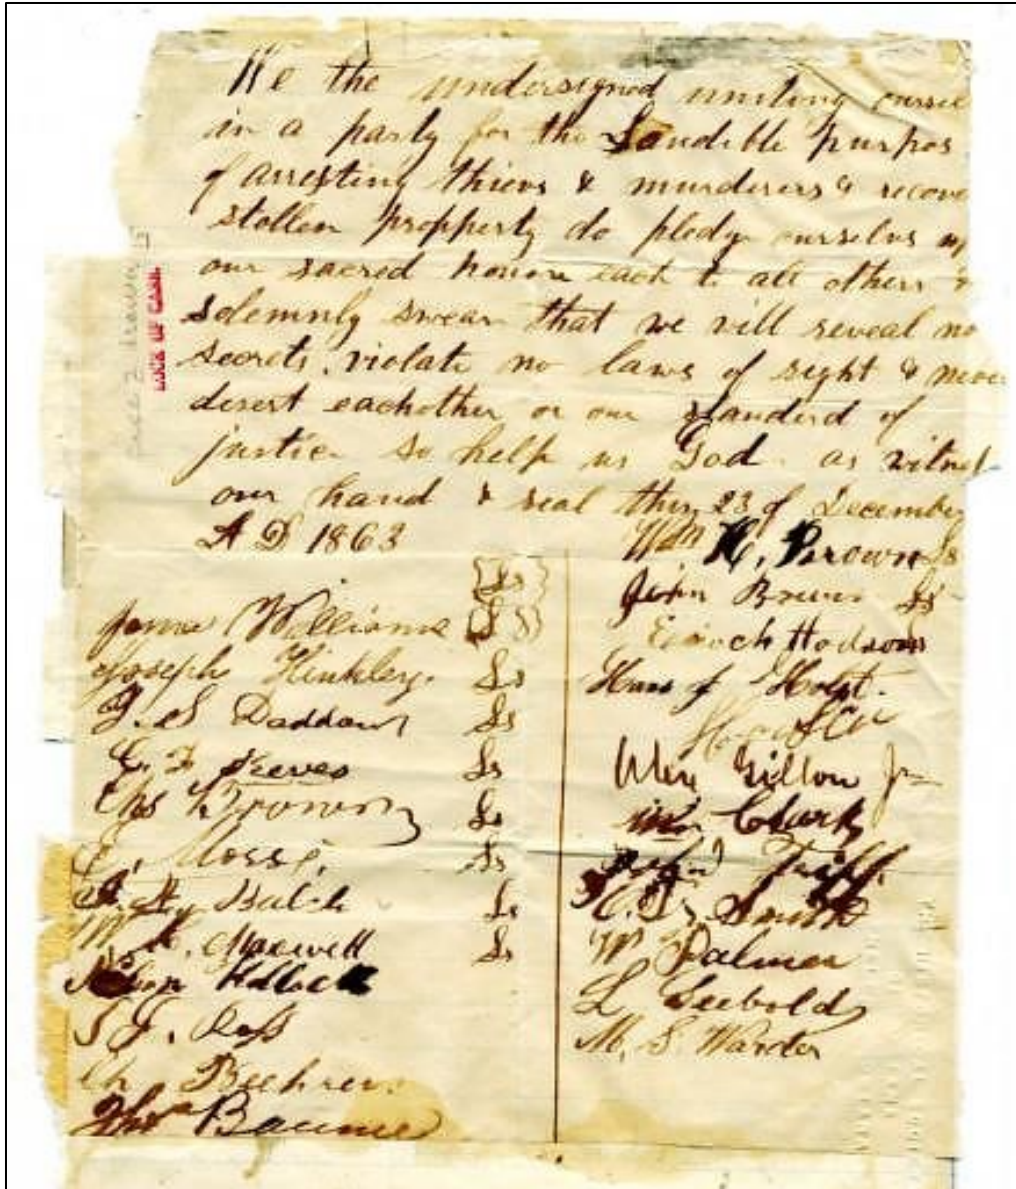 We the undersigned uniting ourse
in a party for the Laudible purpos
of arresting thievs & murderers & recove
stollen propperty do pledge ourselvs up
our sacred honors each to all others &
solemnly swear that we will reveal no
secrets, violate no laws of right & never
desert eachother or our standerd of
justice so help us God as witnes
our hand & seal this 23 of December
A D 1863
James Williams
Joseph Hinkley Ls
J. S Daddow Ls
C. F Keeves Ls
Chs Brown Ls
E, Morse, Ls
Balch Ls
W K. Maxwell Ls
Kellock
S J. Ross
Ch Beehrer
Thos Baume
Wm H. Brown Ls
John Brown Ls
Enoch Hodson
Hans J Holst
Alex Gillon Jr
Wm Clark
Tripp
C. Smith
W Palmer
L Seebold
M. S. Warder